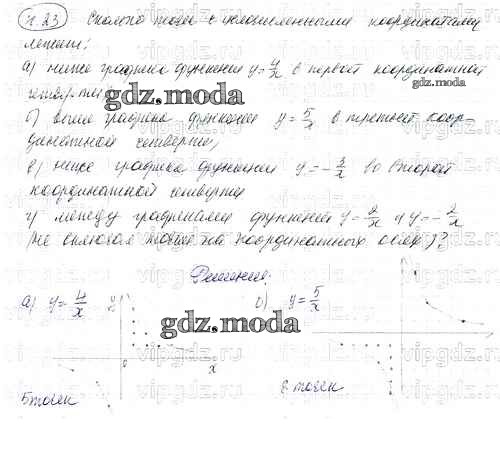 п. 23 Сколько точек с целочисленными координатами
лежит:
а) ниже графика функции y = 4/x в первой координатной
четверти;
gdz.moda
б) выше графика функции y = 5/x в третьей коор-
динатной четверти,
в) ниже графика функции y = - 3/x во второй
координатной четверти
г) между графиками функций y = 2/x и y = - 2/x
(не включая точки на координатных осях)?
Решение.
а) y = 4/x y б) y = 5/x
gdz.moda
0 x
5 точек 8 точек